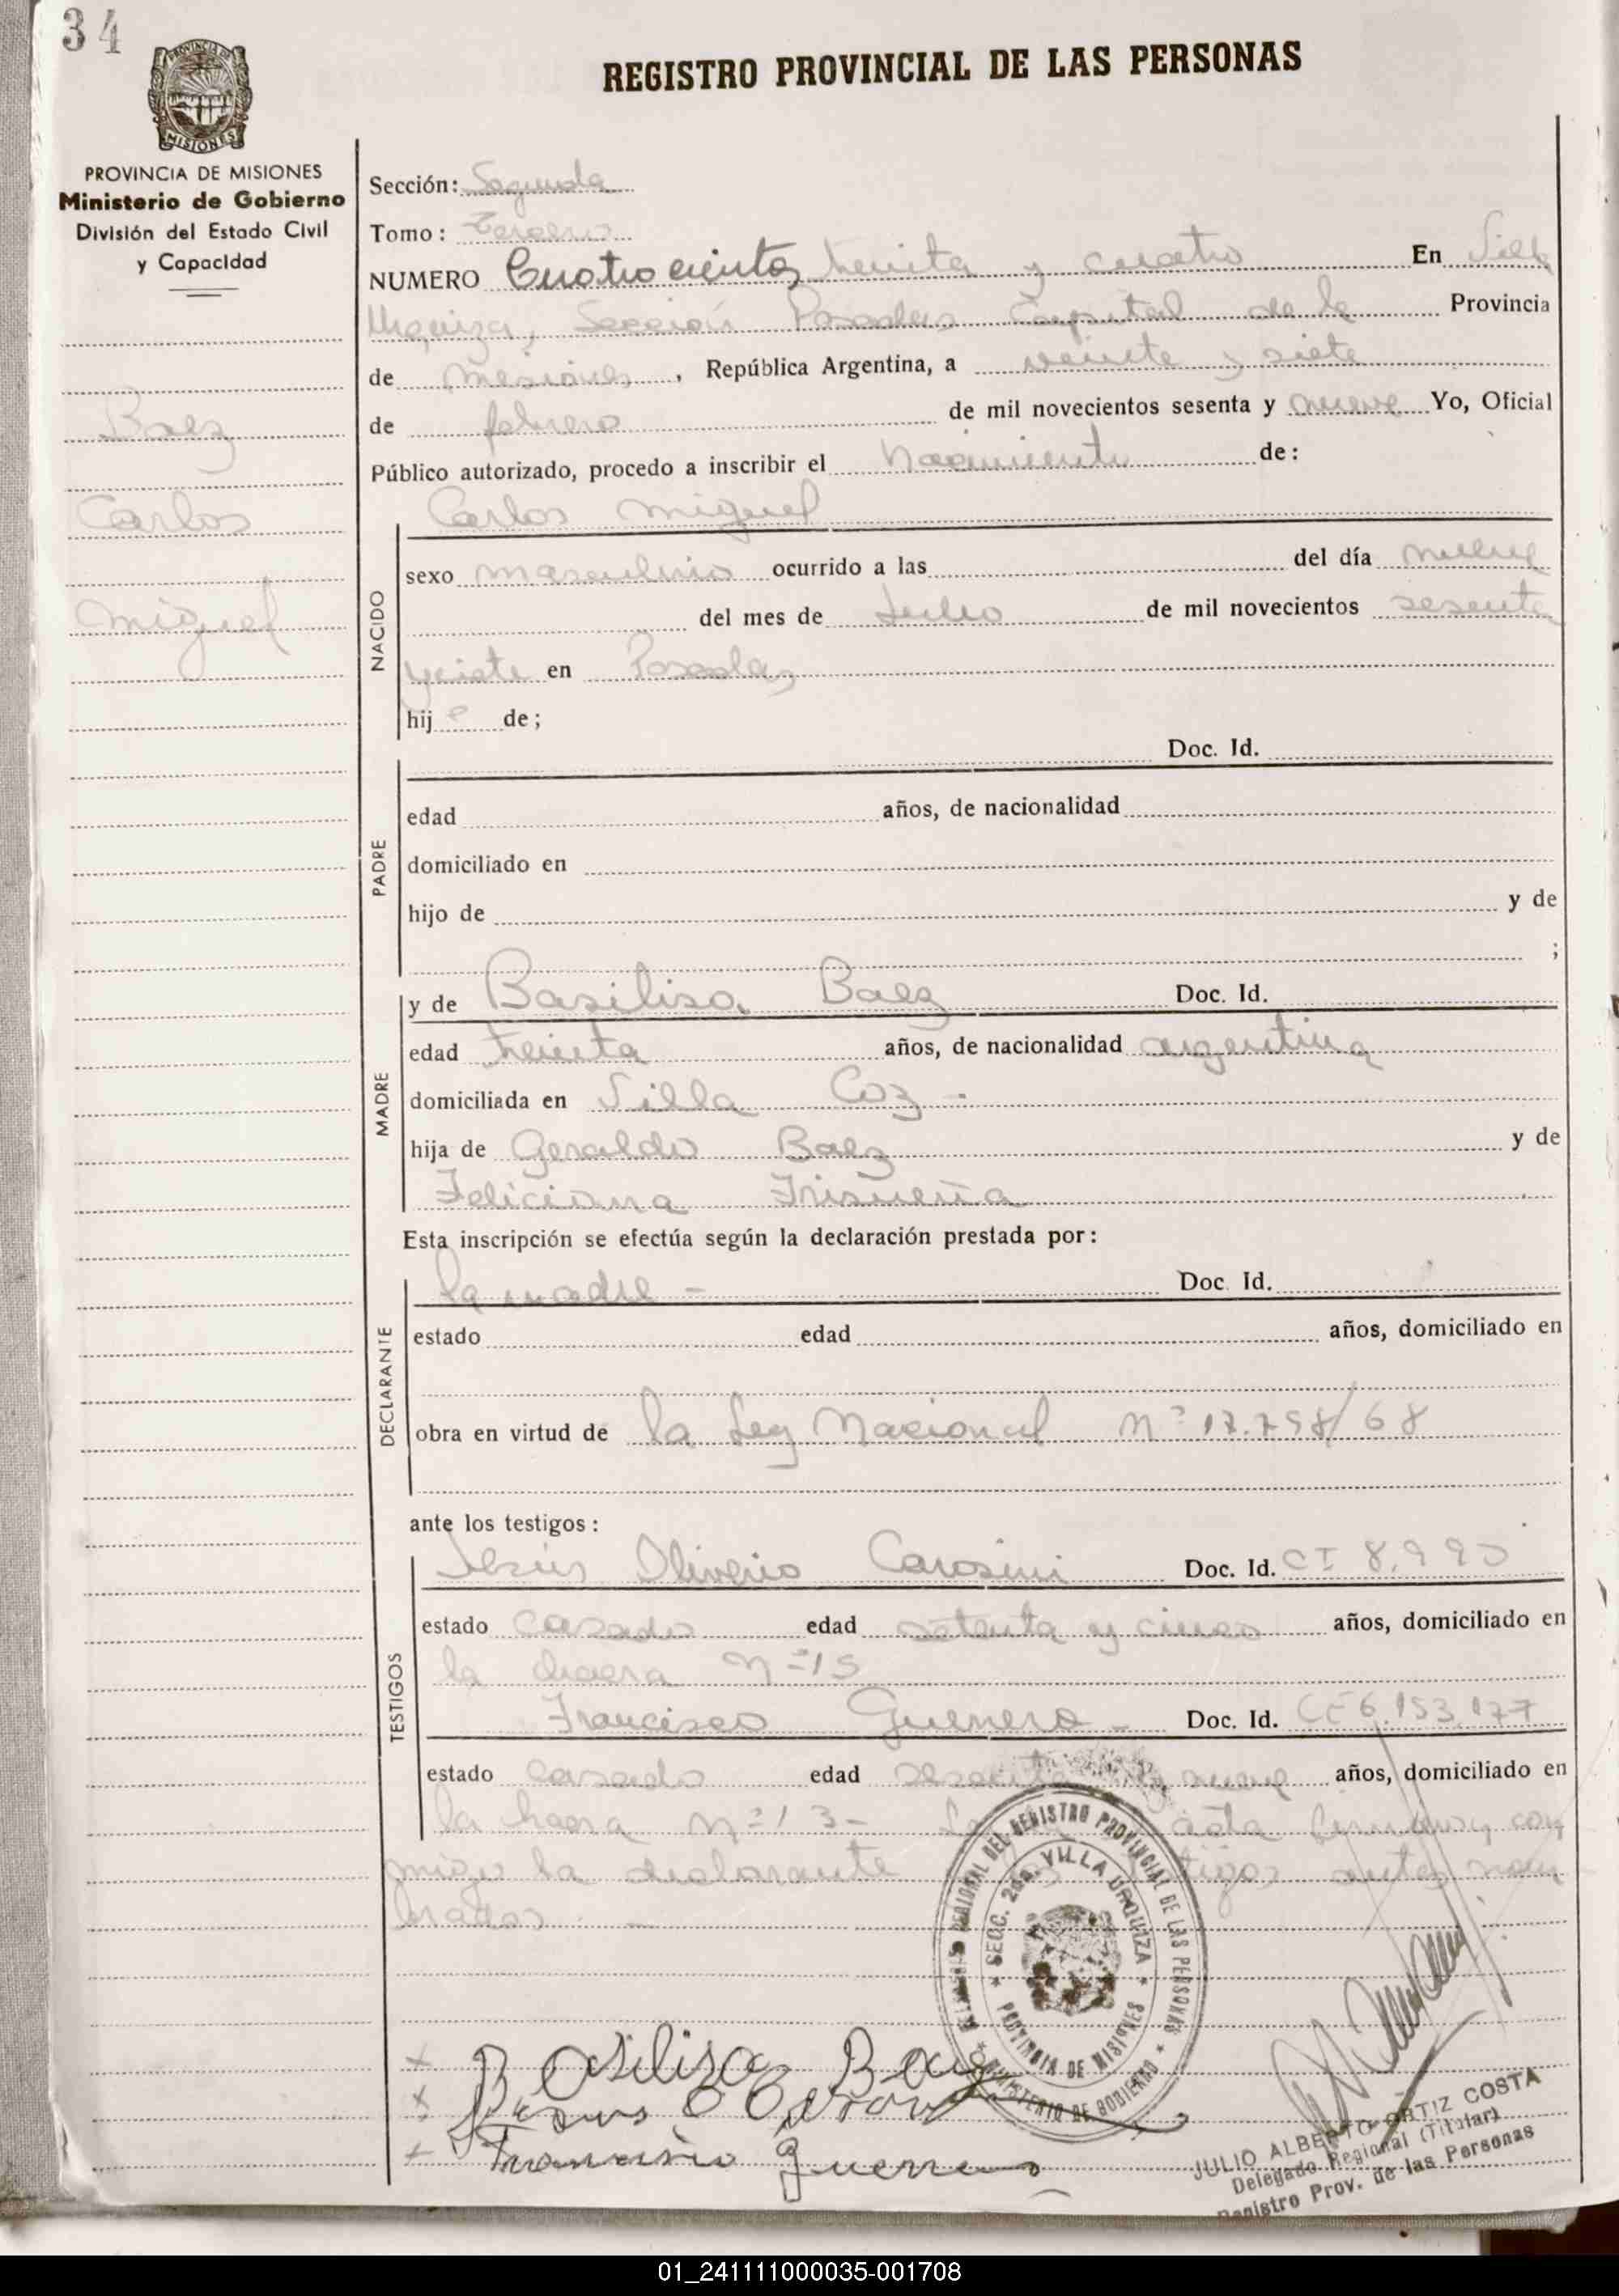 34
PROVINCIA DE MISIONES
MISIONES
REGISTRO PROVINCIAL DE LAS PERSONAS
PROVINCIA DE MISIONES
Ministerio de Gobierno
División del Estado Civil
y Capacidad
Baez
Carlos
Miguel
Sección: Segunda
Tomo: Tercero
NUMERO Cuatrocientos treinta y cuatro En Villa
Urquiza, Sección Posadas Capital de la Provincia
de Misiones, República Argentina, a veinte y siete
de febrero de mil novecientos sesenta y nueve Yo, Oficial
Público autorizado, procedo a inscribir el Nacimiento de:
NACIDO
Carlos Miguel
sexo masculino ocurrido a las del día nueve
del mes de Julio de mil novecientos sesenta
y siete en Posadas
hijo de;
PADRE
Doc. Id.
edad años, de nacionalidad
domiciliado en
hijo de y de
;
MADRE
y de Basilisa Baez Doc. Id.
edad treinta años, de nacionalidad argentina
domiciliada en Villa Coz -
hija de Geraldo Baez y de
Feliciana
Esta inscripción se efectúa según la declaración prestada por:
DECLARANTE
la madre - Doc. Id.
estado edad años, domiciliado en
obra en virtud de la Ley Nacional Nº 17.758/68
ante los testigos:
TESTIGOS
Jesús Oliverio Carosini Doc. Id. CI 8.990
estado casado edad setenta y cinco años, domiciliado en
la chacra Nº 15
Francisco Guerrero - Doc. Id. 6.153.177
estado casado edad sesenta y nueve años, domiciliado en
la chacra Nº 13 - acta firman con
migo la declarante antes nom
brados. -
DELEGACION REGIONAL DEL REGISTRO PROVINCIAL DE LAS PERSONAS
MINISTERIO DE GOBIERNO
SECC. 2da. VILLA URQUIZA
PROVINCIA DE MISIONES
x Basilisa Baez
x Jesus O Carosini
x Francisco Guerrero
JULIO ALBERTO ORTIZ COSTA
Delegado Regional (Titular)
Registro Prov. de las Personas
01_241111000035-001708